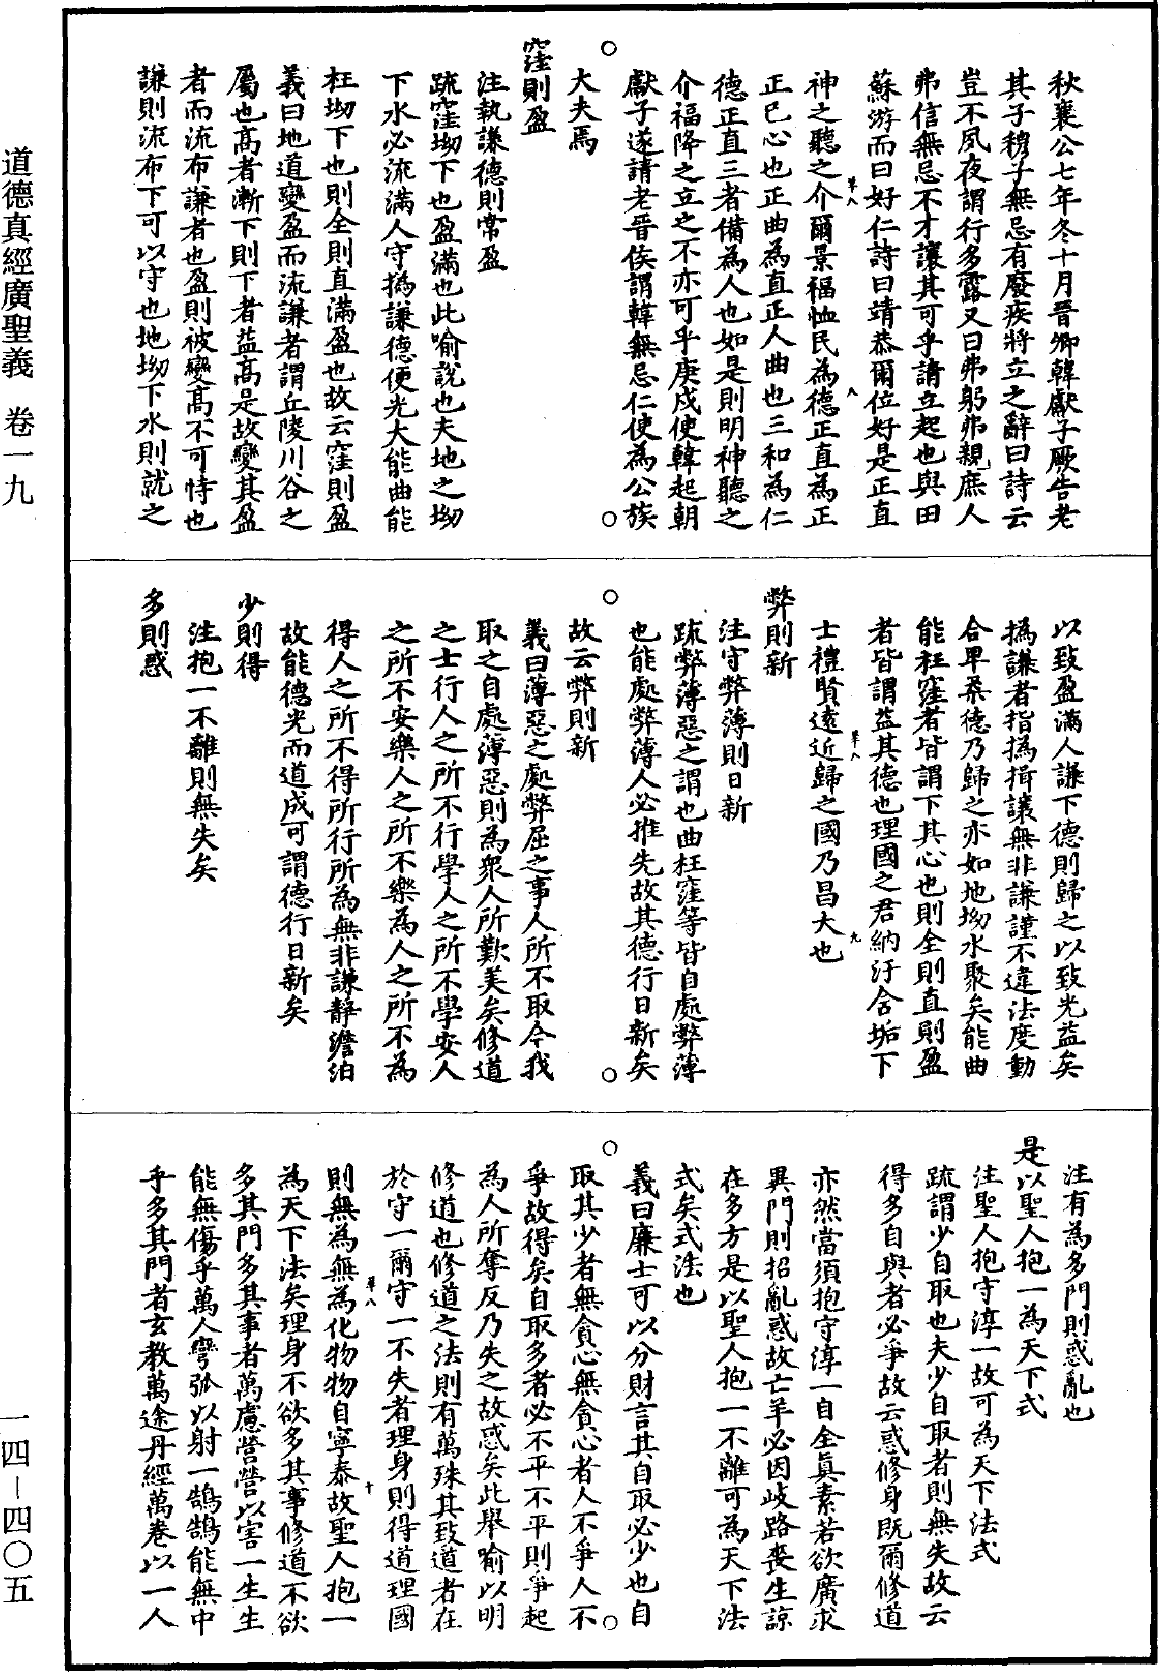 秋襄公七年冬十月晉卿韓獻子厥告老
其子穆子無忌有廢疾將立之辭曰詩云
豈不夙夜謂行多露又曰弗躬弗親庶人
弗信無忌不才讓其可乎請立起也與田
蘇游而曰好仁詩曰靖恭爾位好是正直
神之聽之介爾景福恤民為德正直為正
正已心也正曲為直正人曲也三和為仁
德正直三者備為人也如是則明神聽之
介福降之立之不亦可乎庚戌使韓起朝
獻子遂請老晉侯謂韓無忌仁使為公族
大夫焉
窪則盈
注執謙德則常盈
疏窪坳下也盈滿也此喻說也夫地之坳
下水必流滿人守撝謙德便光大能曲能
枉坳下也則全則直滿盈也故云窪則盈
義曰地道變盈而流謙者謂丘陵川谷之
屬也高者漸下則下者益高是故變其盈
者而流布謙者也盈則被變高不可恃也
謙則流布下可以守也地坳下水則就之
以致盈滿人謙下德則歸之以致光益矣
撝謙者指撝揖讓無非謙謹不違法度動
合卑柔德乃歸之亦如地坳水聚矣能曲
能枉窪者皆謂下其心也則全則直則盈
者皆謂益其德也理國之君納汙含垢下
士禮賢遠近歸之國乃昌大也
弊則新
注守弊薄則日新
疏弊薄惡之謂也曲枉窪等皆自處弊薄
也能處弊薄人必推先故其德行日新矣
故云弊則新
義曰薄惡之處弊屈之事人所不取今我
取之自處薄惡則為衆人所歎美矣修道
之士行人之所不行學人之所不學安人
之所不安樂人之所不樂為人之所不為
得人之所不得所行所為無非謙靜澹泊
故能德光而道成可謂德行日新矣
少則得
注抱一不離則無失矣
多則惑
注有為多門則惑亂也
是以聖人抱一為天下式
注聖人抱守淳一故可為天下法式
疏謂少自取也夫少自取者則無失故云
得多自與者必爭故云惑修身既爾修道
亦然當須抱守淳一自全真素若欲廣求
異門則招亂惑故亡羊必因歧路喪生諒
在多方是以聖人抱一不離可為天下法
式矣式法也
義曰廉士可以分財言其自取必少也自
取其少者無貪心無貪心者人不爭人不
爭故得矣自取多者必不平不平則爭起
為人所奪反乃失之故惑矣此舉喻以明
修道也修道之法則有萬殊其致道者在
於守一爾守一不失者理身則得道理國
則無為無為化物物自寧泰故聖人抱一
為天下法矣理身不欲多其事修道不欲
多其門多其事者萬慮營營以害一生生
能無傷乎萬人彎弧以射一鵠鵠能無中
乎多其門者玄教萬途丹經萬卷以一人
道德真經廣聖義 卷一九
一四—四〇五